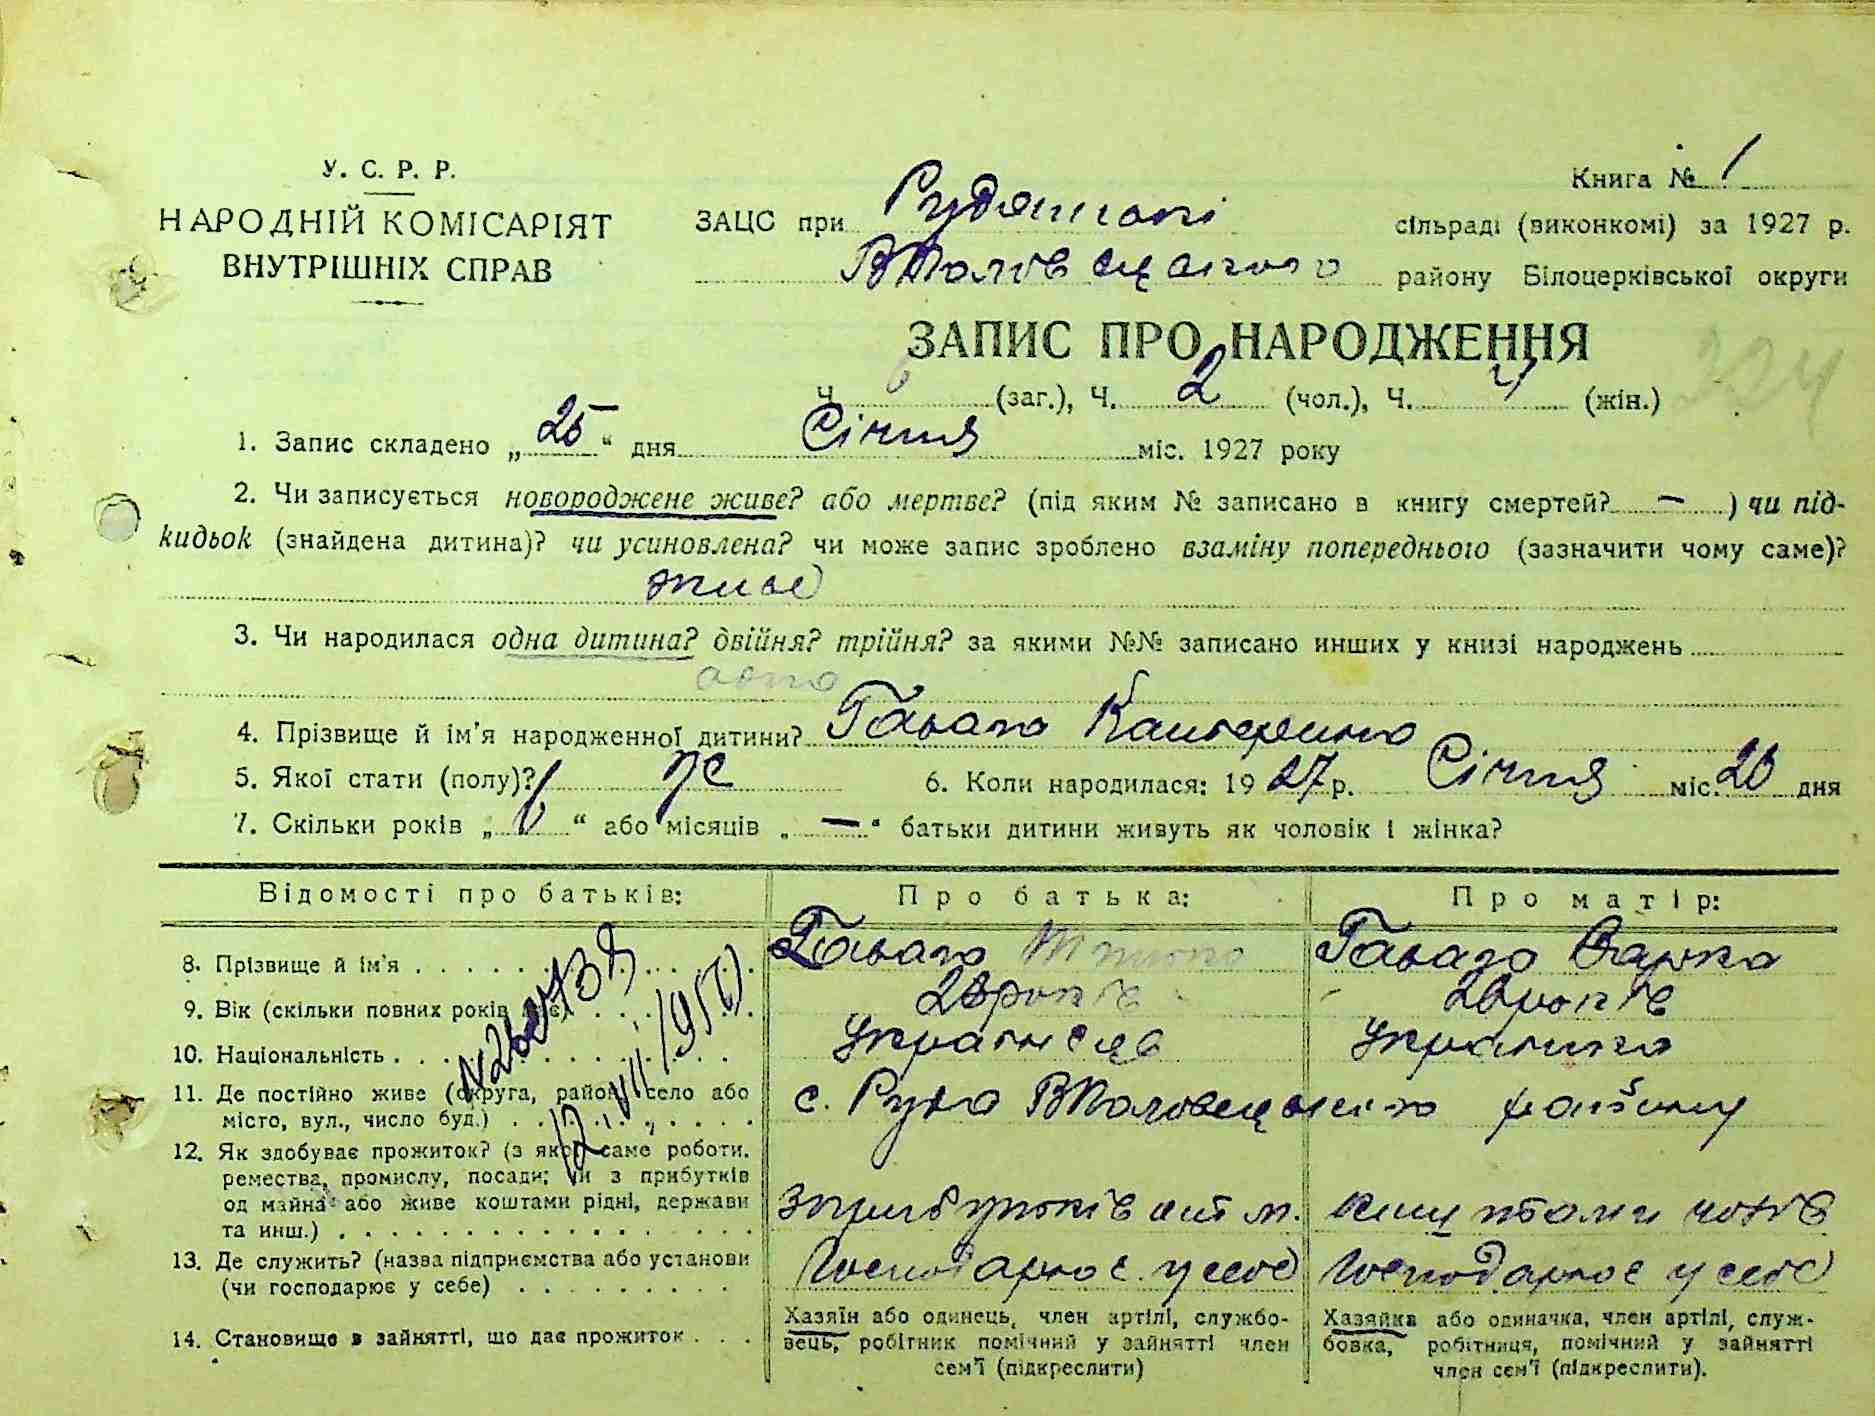 У. С. Р. Р.
НАРОДНІЙ КОМІСАРІЯТ
ВНУТРІШНІХ СПРАВ
Книга № 1
ЗАЦС при Рудянській сільраді (виконкомі) за 1927 р.
району Білоцерківської округи
ЗАПИС ПРО НАРОДЖЕННЯ
Ч. 6 (заг.), Ч. 2 (чол.), Ч. 4 (жін.)
224
1. Запис складено „25“ дня Січня міс. 1927 року
2. Чи записується новороджене живе? або мертве? (під яким № записано в книгу смертей? — ) чи під-
кидьок (знайдена дитина)? чи усиновлена? чи може запис зроблено взаміну попереднього (зазначити чому саме)?
живе
3. Чи народилася одна дитина? двійня? трійня? за якими №№ записано инших у книзі народжень
одна
4. Прізвище й ім'я народженної дитини? Катерина
5. Якої стати (полу)? ж 6. Коли народилася: 1927 р. Січня міс. 20 дня
7. Скільки років „6“ або місяців „—“ батьки дитини живуть як чоловік і жінка?
Відомості про батьків: Про батька: Про матір:
8. Прізвище й ім'я
9. Вік (скільки повних років має) років років
10. Національність Українець Українка
11. Де постійно живе (округа, район, село або
місто, вул., число буд.) с. Руда району
12. Як здобуває прожиток? (з якої саме роботи,
ремества, промислу, посади; чи з прибутків
од майна або живе коштами рідні, держави
та инш.)
13. Де служить? (назва підприємства або установи
(чи господарює у себе) Господарює у себе Господарює у себе
14. Становище в зайнятті, що дає прожиток
Хазяїн або одинець, член артілі, службо-
вець, робітник помічний у зайнятті член
сем'ї (підкреслити)
Хазяйка або одиначка, член артілі, служ-
бовка, робітниця, помічний у зайнятті
член сем'ї (підкреслити).